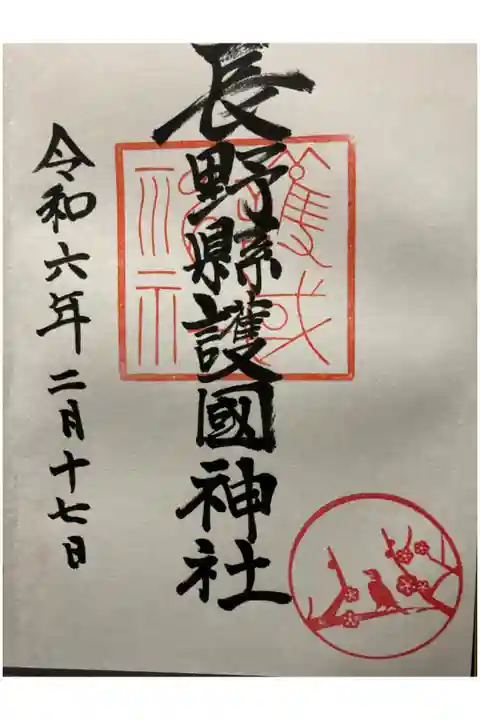 長野縣護國神社
令和六年二月十七日